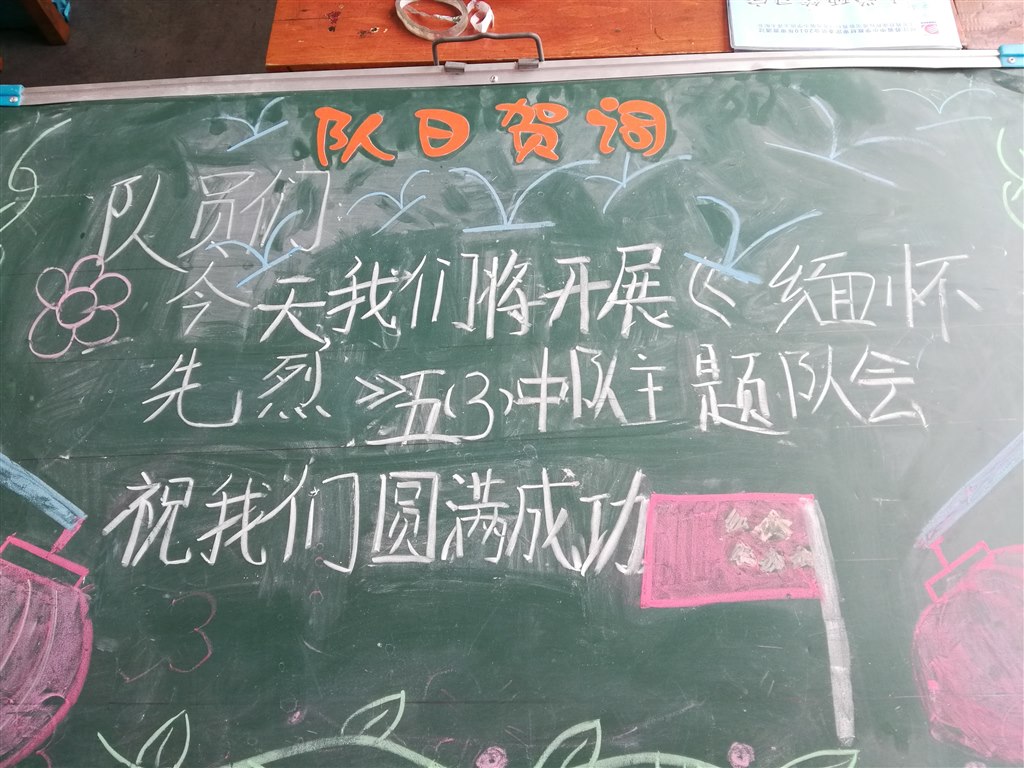 队日贺词
队员们
今天我们将开展《缅怀
先烈》五(3)中队主题队会
祝我们圆满成功